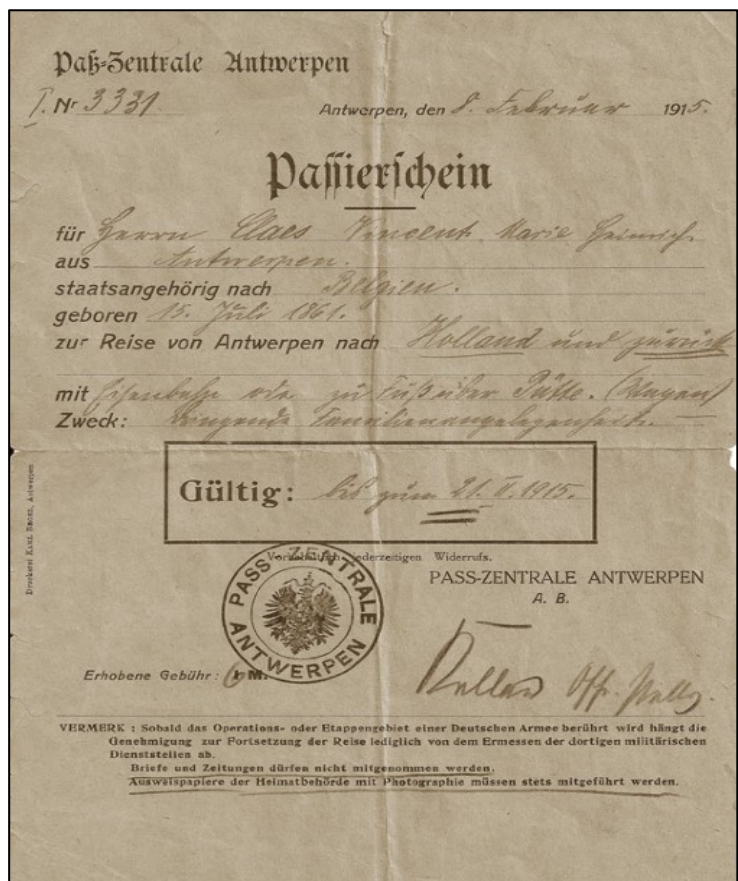 Paß-Zentrale Antwerpen
I. Nr 3331. Antwerpen, den 8. Februar 1915.
Passierschein
für Herrn Claes Vincent Marie Heinrich
aus Antwerpen.
staatsangehörig nach Belgien.
geboren 15. Juli 1861.
zur Reise von Antwerpen nach Holland und zurück
mit Eisenbahn oder zu Fuß über Pütte. (Wagen)
Zweck: dringende Familienangelegenheit. —
Gültig: bis zum 21. II. 1915.
Vorbehaltlich jederzeitigen Widerrufs.
PASS-ZENTRALE ANTWERPEN
A. B.
PASS-ZENTRALE
ANTWERPEN
Erhobene Gebühr: M.
VERMERK : Sobald das Operations- oder Etappengebiet einer Deutschen Armee berührt wird hängt die
Genehmigung zur Fortsetzung der Reise lediglich von dem Ermessen der dortigen militärischen
Dienststellen ab.
Briefe und Zeitungen dürfen nicht mitgenommen werden.
Ausweispapiere der Heimatbehörde mit Photographie müssen stets mitgeführt werden.
Druckerei Antwerpen